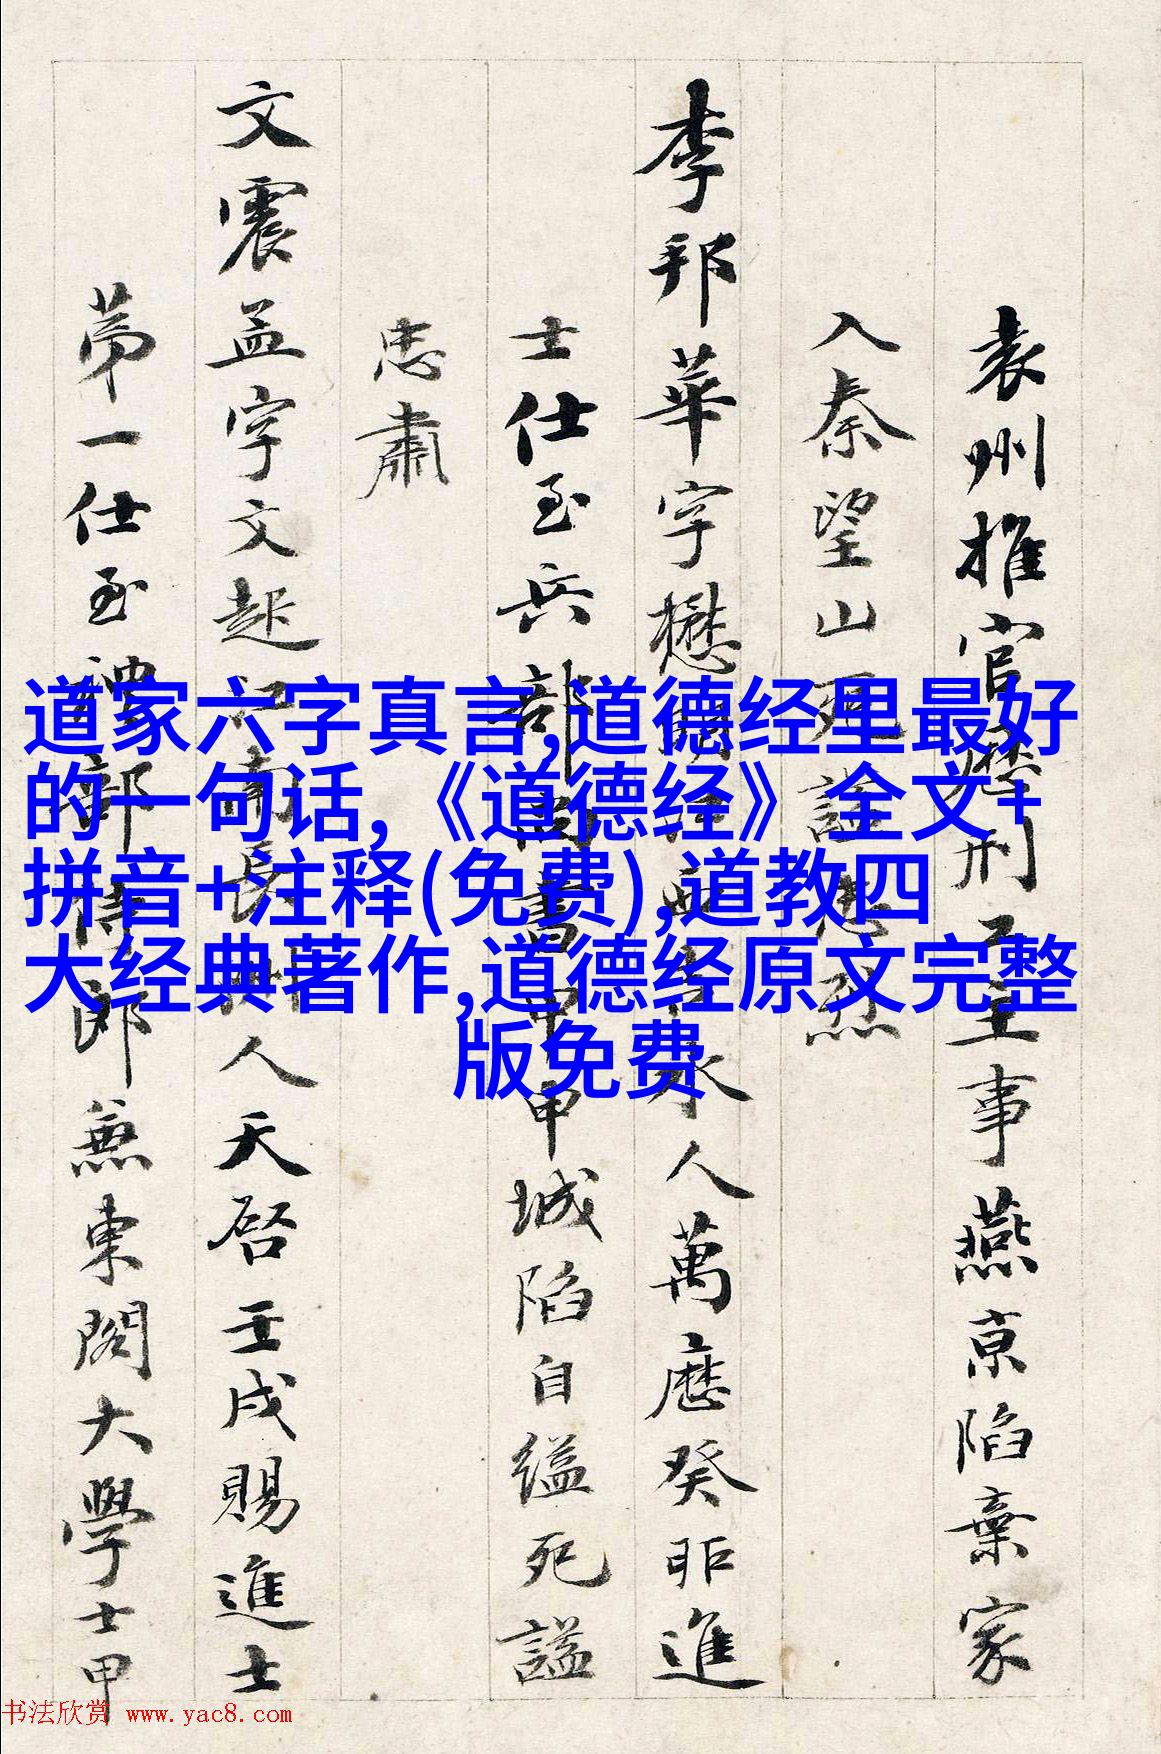 袁州推官歷刑工主事燕京陷棄家
入秦望山死諡忠烈
李邦華字懋明江西吉水人萬曆癸卯進
士仕至兵部尚書甲申城陷自縊死諡
忠肅
文震孟字文起江南長洲人天啓壬戌賜進士
第一仕至禮部侍郎兼東閣大學士甲
道家六字真言,道德经里最好
的一句话,《道德经》全文+
拼音+注释(免费),道教四
大经典著作,道德经原文完整
版免费
书法欣赏 www.yac8.com